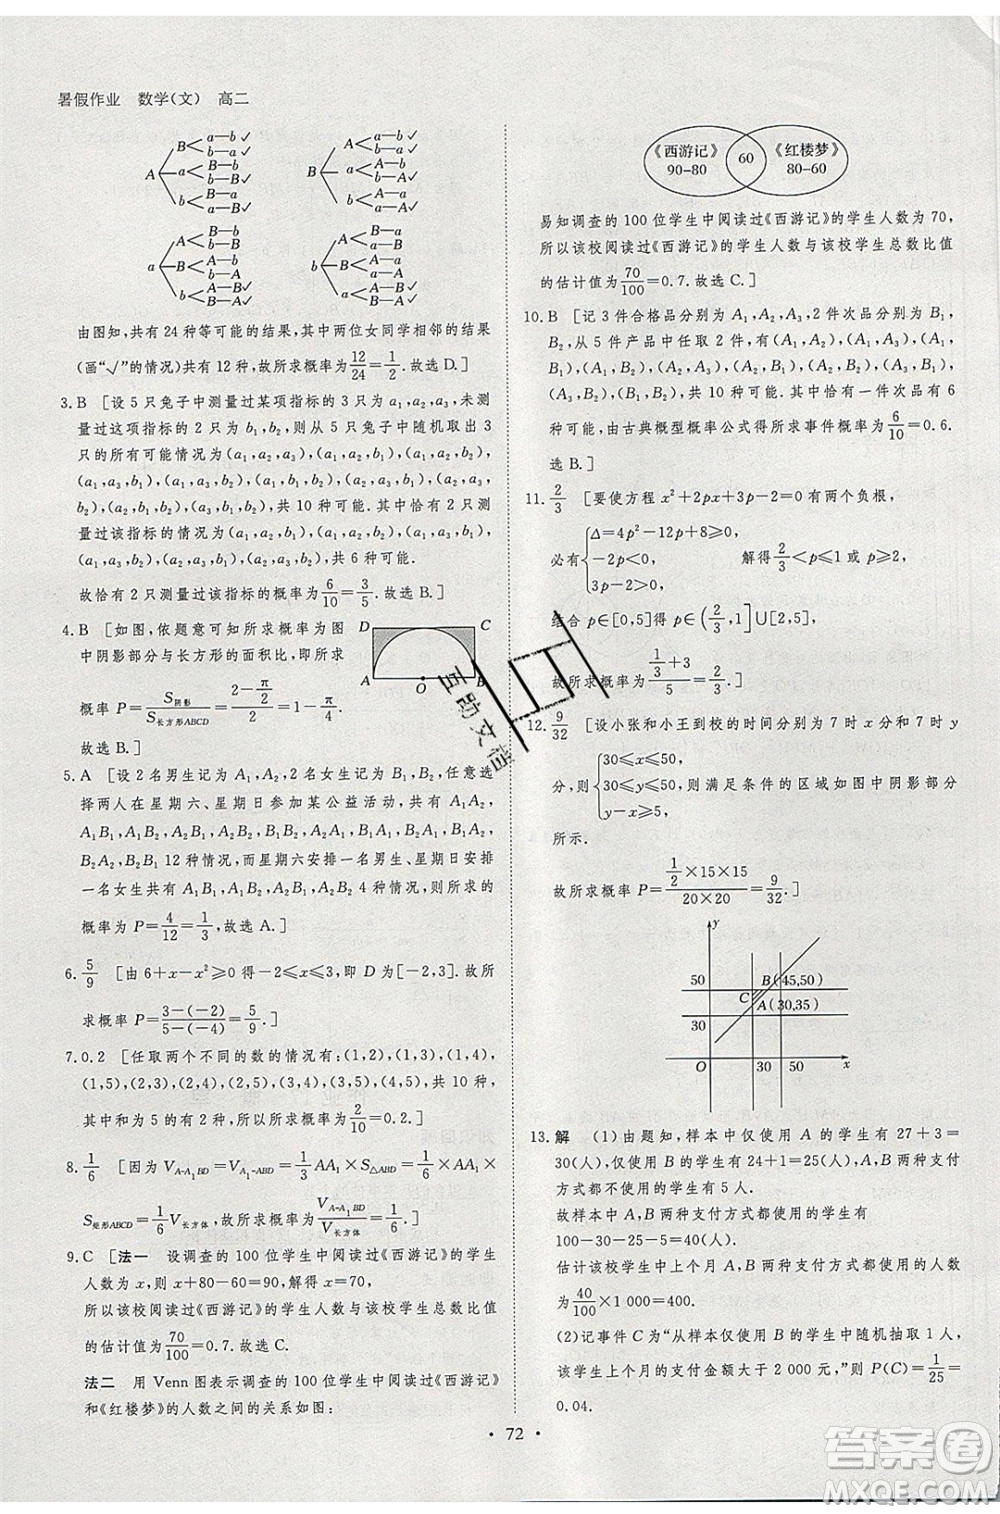 暑假作业 数学(文) 高二
A B a—b✓
b—a✓
a B—b
b—B
b B—a
a—B
B A a—b✓
b—a✓
a A—b
b—A
b A—a
a—A
a A B—b
b—B
B A—b
b—A
b A—B✓
B—A✓
b A B—a
a—B
B A—a
a—A
a A—B✓
B—A✓
由图知,共有 24 种等可能的结果,其中两位女同学相邻的结果
(画“√”的情况)共有 12 种,故所求概率为12/24=1/2.故选 D.]
3.B [设 5 只兔子中测量过某项指标的 3 只为 a₁,a₂,a₃,未测
量过这项指标的 2 只为 b₁,b₂,则从 5 只兔子中随机取出 3
只的所有可能情况为(a₁,a₂,a₃),(a₁,a₂,b₁),(a₁,a₂,b₂),
(a₁,a₃,b₁),(a₁,a₃,b₂),(a₁,b₁,b₂),(a₂,a₃,b₁),(a₂,a₃,b₂),
(a₂,b₁,b₂),(a₃,b₁,b₂),共 10 种可能.其中恰有 2 只测
量过该指标的情况为(a₁,a₂,b₁),(a₁,a₂,b₂),(a₁,a₃,b₁),
(a₁,a₃,b₂),(a₂,a₃,b₁),(a₂,a₃,b₂),共 6 种可能.
故恰有 2 只测量过该指标的概率为6/10=3/5.故选 B.]
4.B [如图,依题意可知所求概率为图
中阴影部分与长方形的面积比,即所求
概率 P=S阴影/S长方形ABCD=(2-π/2)/2=1-π/4.
故选 B.]
D C A O B
5.A [设 2 名男生记为 A₁,A₂,2 名女生记为 B₁,B₂,任意选
择两人在星期六、星期日参加某公益活动,共有 A₁A₂,
A₁B₁,A₁B₂,A₂B₁,A₂B₂,B₁B₂,A₂A₁,B₁A₁,B₂A₁,B₁A₂,
B₂A₂,B₂B₁ 12 种情况,而星期六安排一名男生、星期日安排
一名女生共有 A₁B₁,A₁B₂,A₂B₁,A₂B₂ 4 种情况,则所求的
概率为 P=4/12=1/3,故选 A.]
6.5/9 [由 6+x-x²≥0 得-2≤x≤3,即 D 为[-2,3].故所
求概率 P=(3-(-2))/(5-(-4))=5/9.]
7.0.2 [任取两个不同的数的情况有:(1,2),(1,3),(1,4),
(1,5),(2,3),(2,4),(2,5),(3,4),(3,5),(4,5),共 10 种,
其中和为 5 的有 2 种,所以所求概率为2/10=0.2.]
8.1/6 [因为 V_{A-A₁BD}=V_{A₁-ABD}=1/3 AA₁×S_{△ABD}=1/6 AA₁×
S矩形ABCD=1/6 V长方体,故所求概率为V_{A-A₁BD}/V长方体=1/6.]
9.C [法一 设调查的 100 位学生中阅读过《西游记》的学生
人数为 x,则 x+80-60=90,解得 x=70,
所以该校阅读过《西游记》的学生人数与该校学生总数比值
的估计值为70/100=0.7.故选 C.
法二 用 Venn 图表示调查的 100 位学生中阅读过《西游记》
和《红楼梦》的人数之间的关系如图:
《西游记》 90-80
60
《红楼梦》 80-60
易知调查的 100 位学生中阅读过《西游记》的学生人数为 70,
所以该校阅读过《西游记》的学生人数与该校学生总数比值
的估计值为70/100=0.7.故选 C.]
10.B [记 3 件合格品分别为 A₁,A₂,A₃,2 件次品分别为 B₁,
B₂,从 5 件产品中任取 2 件,有(A₁,A₂),(A₁,A₃),(A₁,
B₁),(A₁,B₂),(A₂,A₃),(A₂,B₁),(A₂,B₂),(A₃,B₁),
(A₃,B₂),(B₁,B₂),共 10 种可能.其中恰有一件次品有 6
种可能,由古典概型概率公式得所求事件概率为6/10=0.6.
选 B.]
11.2/3 [要使方程 x²+2px+3p-2=0 有两个负根,
必有{Δ=4p²-12p+8≥0, -2p<0, 3p-2>0, 解得2/3<p≤1 或 p≥2,
结合 p∈[0,5]得 p∈(2/3,1]∪[2,5],
故所求概率 P=(1/3+3)/5=2/3.]
12.9/32 [设小张和小王到校的时间分别为 7 时 x 分和 7 时 y
分,则{30≤x≤50, 30≤y≤50, y-x≥5, 满足条件的区域如图中阴影部分
所示.
故所求概率 P=(1/2×15×15)/(20×20)=9/32.]
y
50 B(45,50)
C A(30,35)
30
O 30 50 x
13.解 (1)由题知,样本中仅使用 A 的学生有 27+3=
30(人),仅使用 B 的学生有 24+1=25(人),A,B 两种支付
方式都不使用的学生有 5 人.
故样本中 A,B 两种支付方式都使用的学生有
100-30-25-5=40(人).
估计该校学生中上个月 A,B 两种支付方式都使用的人数
为40/100×1 000=400.
(2)记事件 C 为“从样本仅使用 B 的学生中随机抽取 1 人,
该学生上个月的支付金额大于 2 000 元,”则 P(C)=1/25=
0.04.
• 72 •
互助文档
答案卷
MXQE.COM